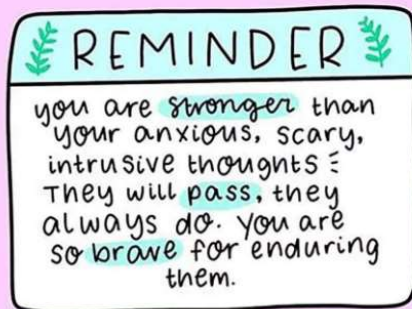 REMINDER
you are stronger than
your anxious, scary,
intrusive thoughts
They will pass, they
always do. you are
so brave for enduring
them.